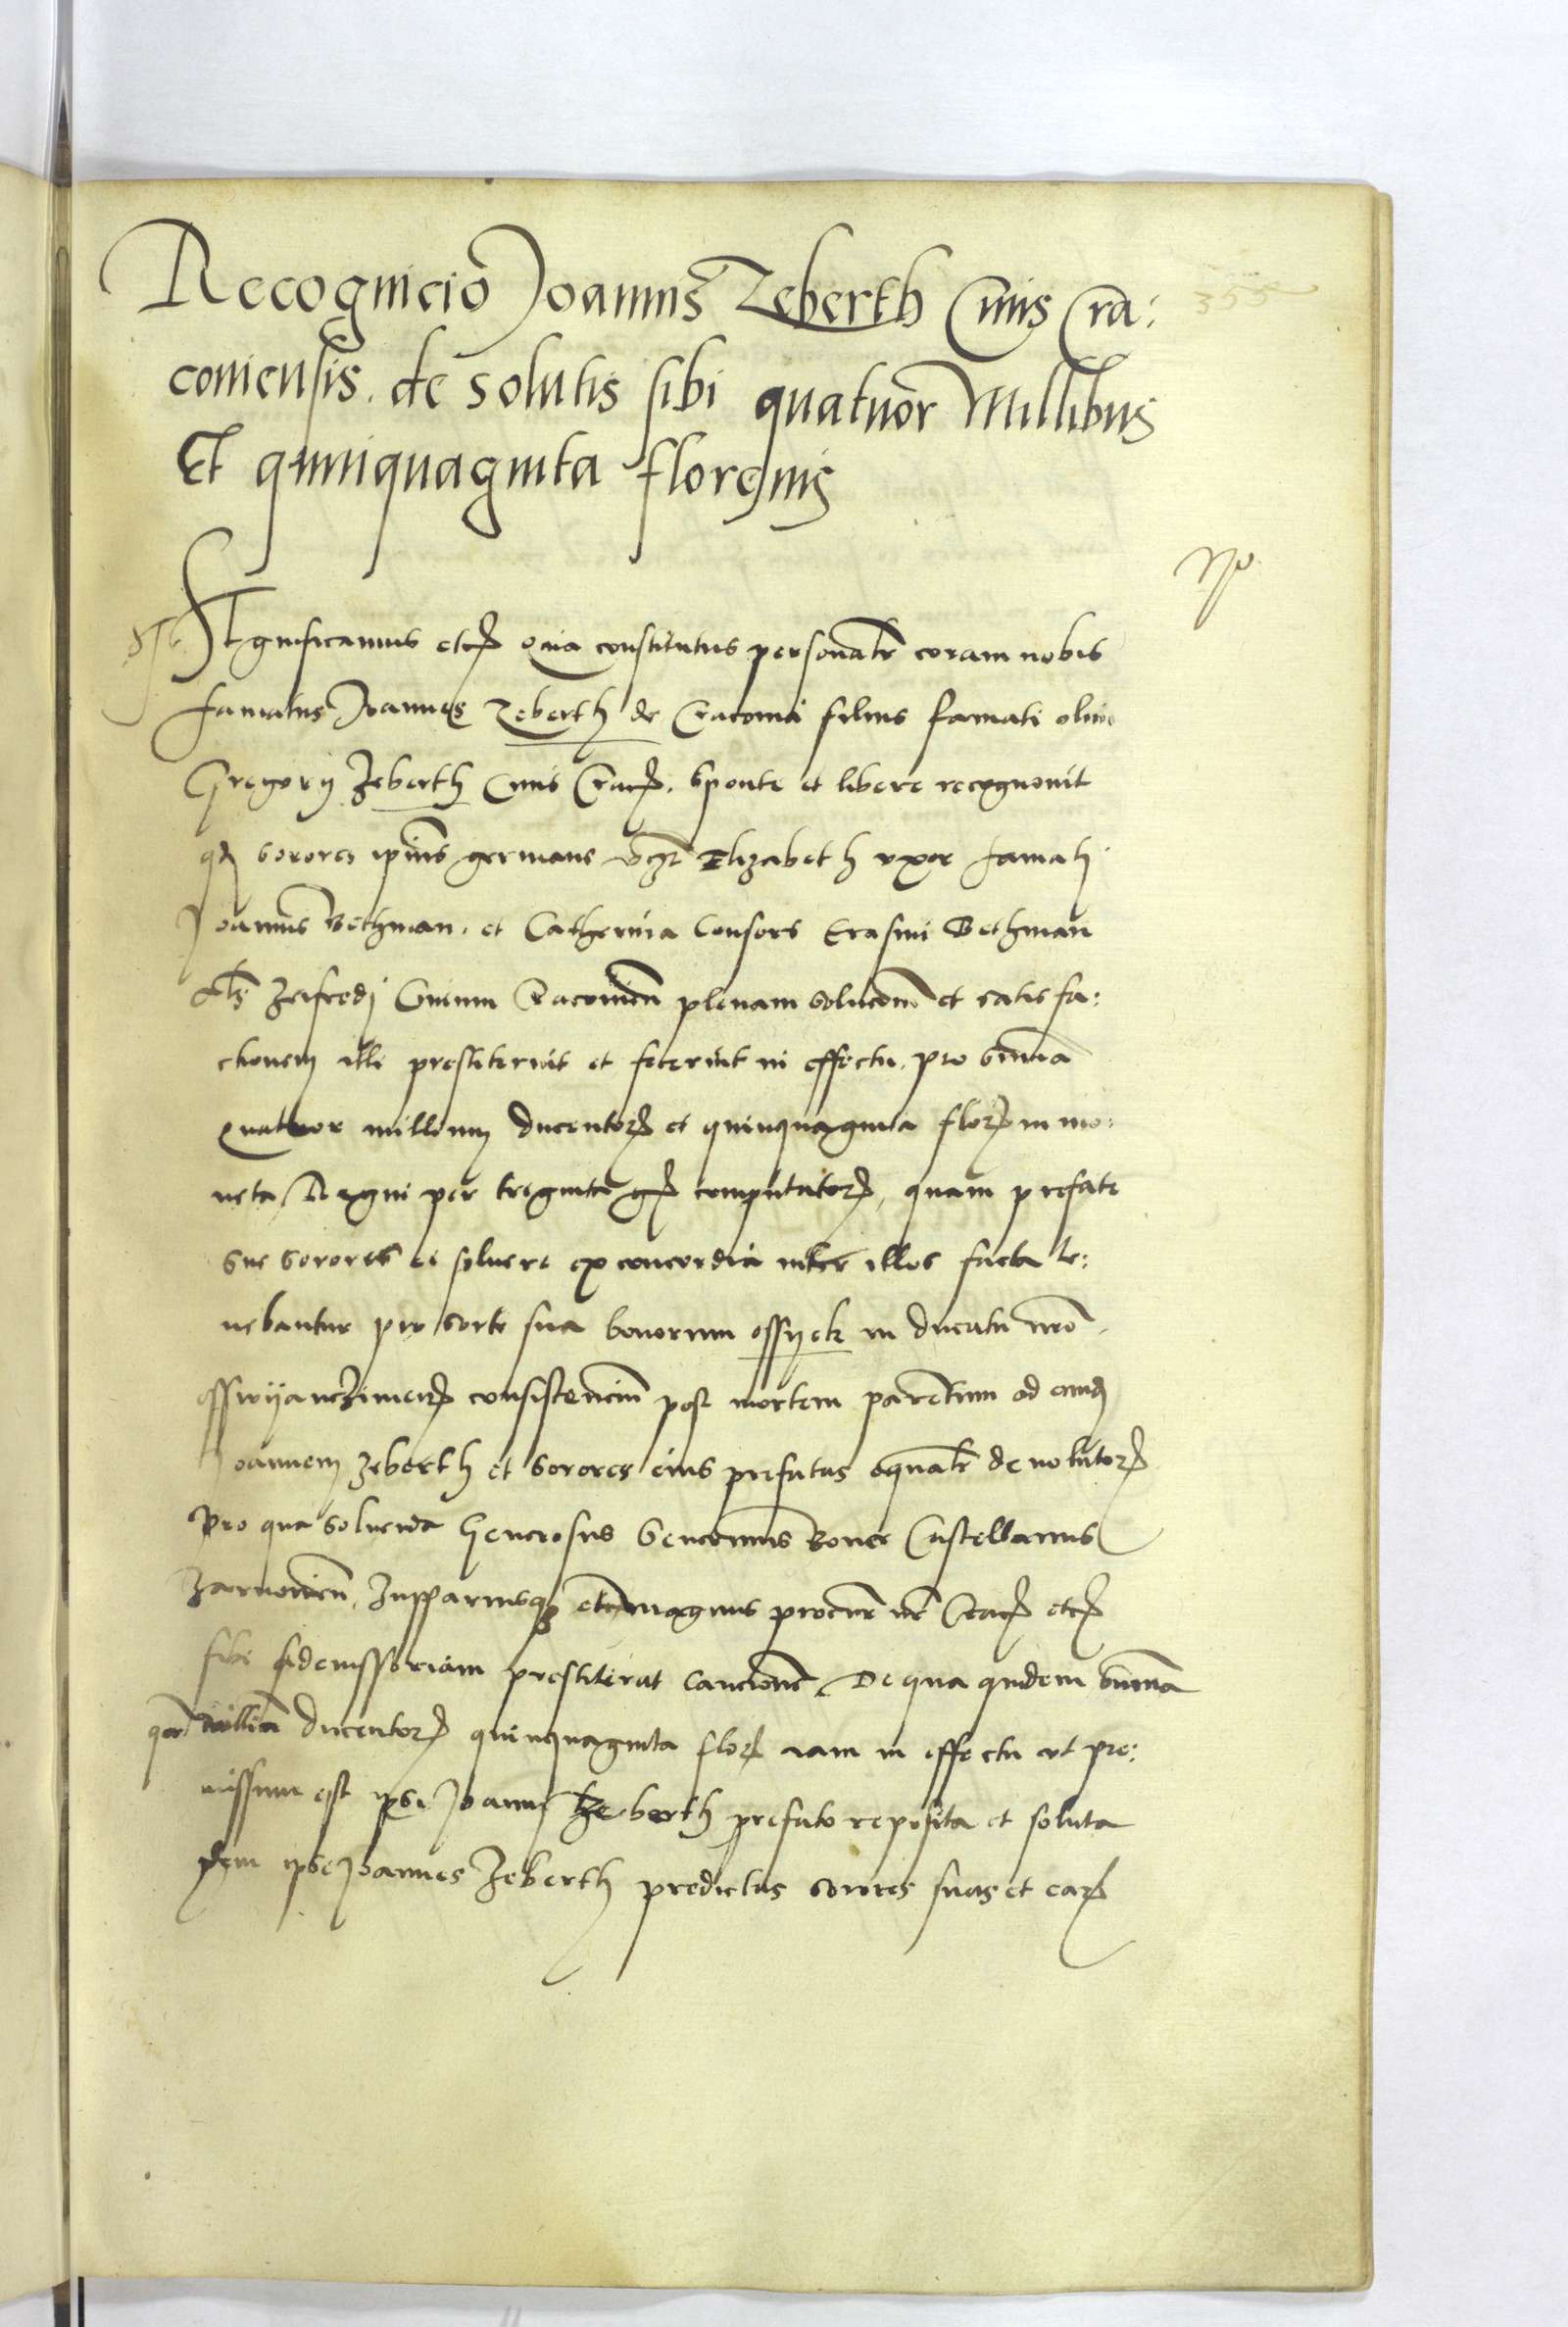 355
Recognicio Joannis Zeberth Civis Cra:
coviensis. de solutis sibi quatuor Millibus
Et quinquaginta florenis
Significamus etc Quia constitutus personalr coram nobis
famatus Joannes Zeberth de Cracovia filius famati olim
Gregorii Zeberth Civis Crac. sponte et libere recognovit
qd sorores ipius germane vcz Elizabeth uxor famati
Joannis Bethman. et Catherina Consors Erasmi Bethman
als Zeifredj Civium Cracovien plenam solucom et satisfa:
ctionem illi prestiterint et fecerint in effectu. pro summa
Quatuor millium ducentor et quinquaginta flor in mo:
neta Regni per triginta gr computator, quam prefate
sue sorores ei solvere ex concordia inter illos facta te:
nebantur pro sorte sua bonorum ossyek in ducatu nro
osswyanczimen consistencium post mortem parentum ad eund
Joannem Zeberth et sorores eius prefatas equalr devolutor
Pro qua solvenda Generosus Severinus Boner Castellanus
Zarnovien, Zupparius etc magnus procur nr Crac etc
sibi fideiussoriam prestiterat caucione. De qua quidem summa
millia ducentor quinquaginta flor iam in effectu ut pre:
missum est ipsi Joanni Zeberth prefato reposita et soluta
idem ipse Joannes Zeberth predictus sorores suas et ear